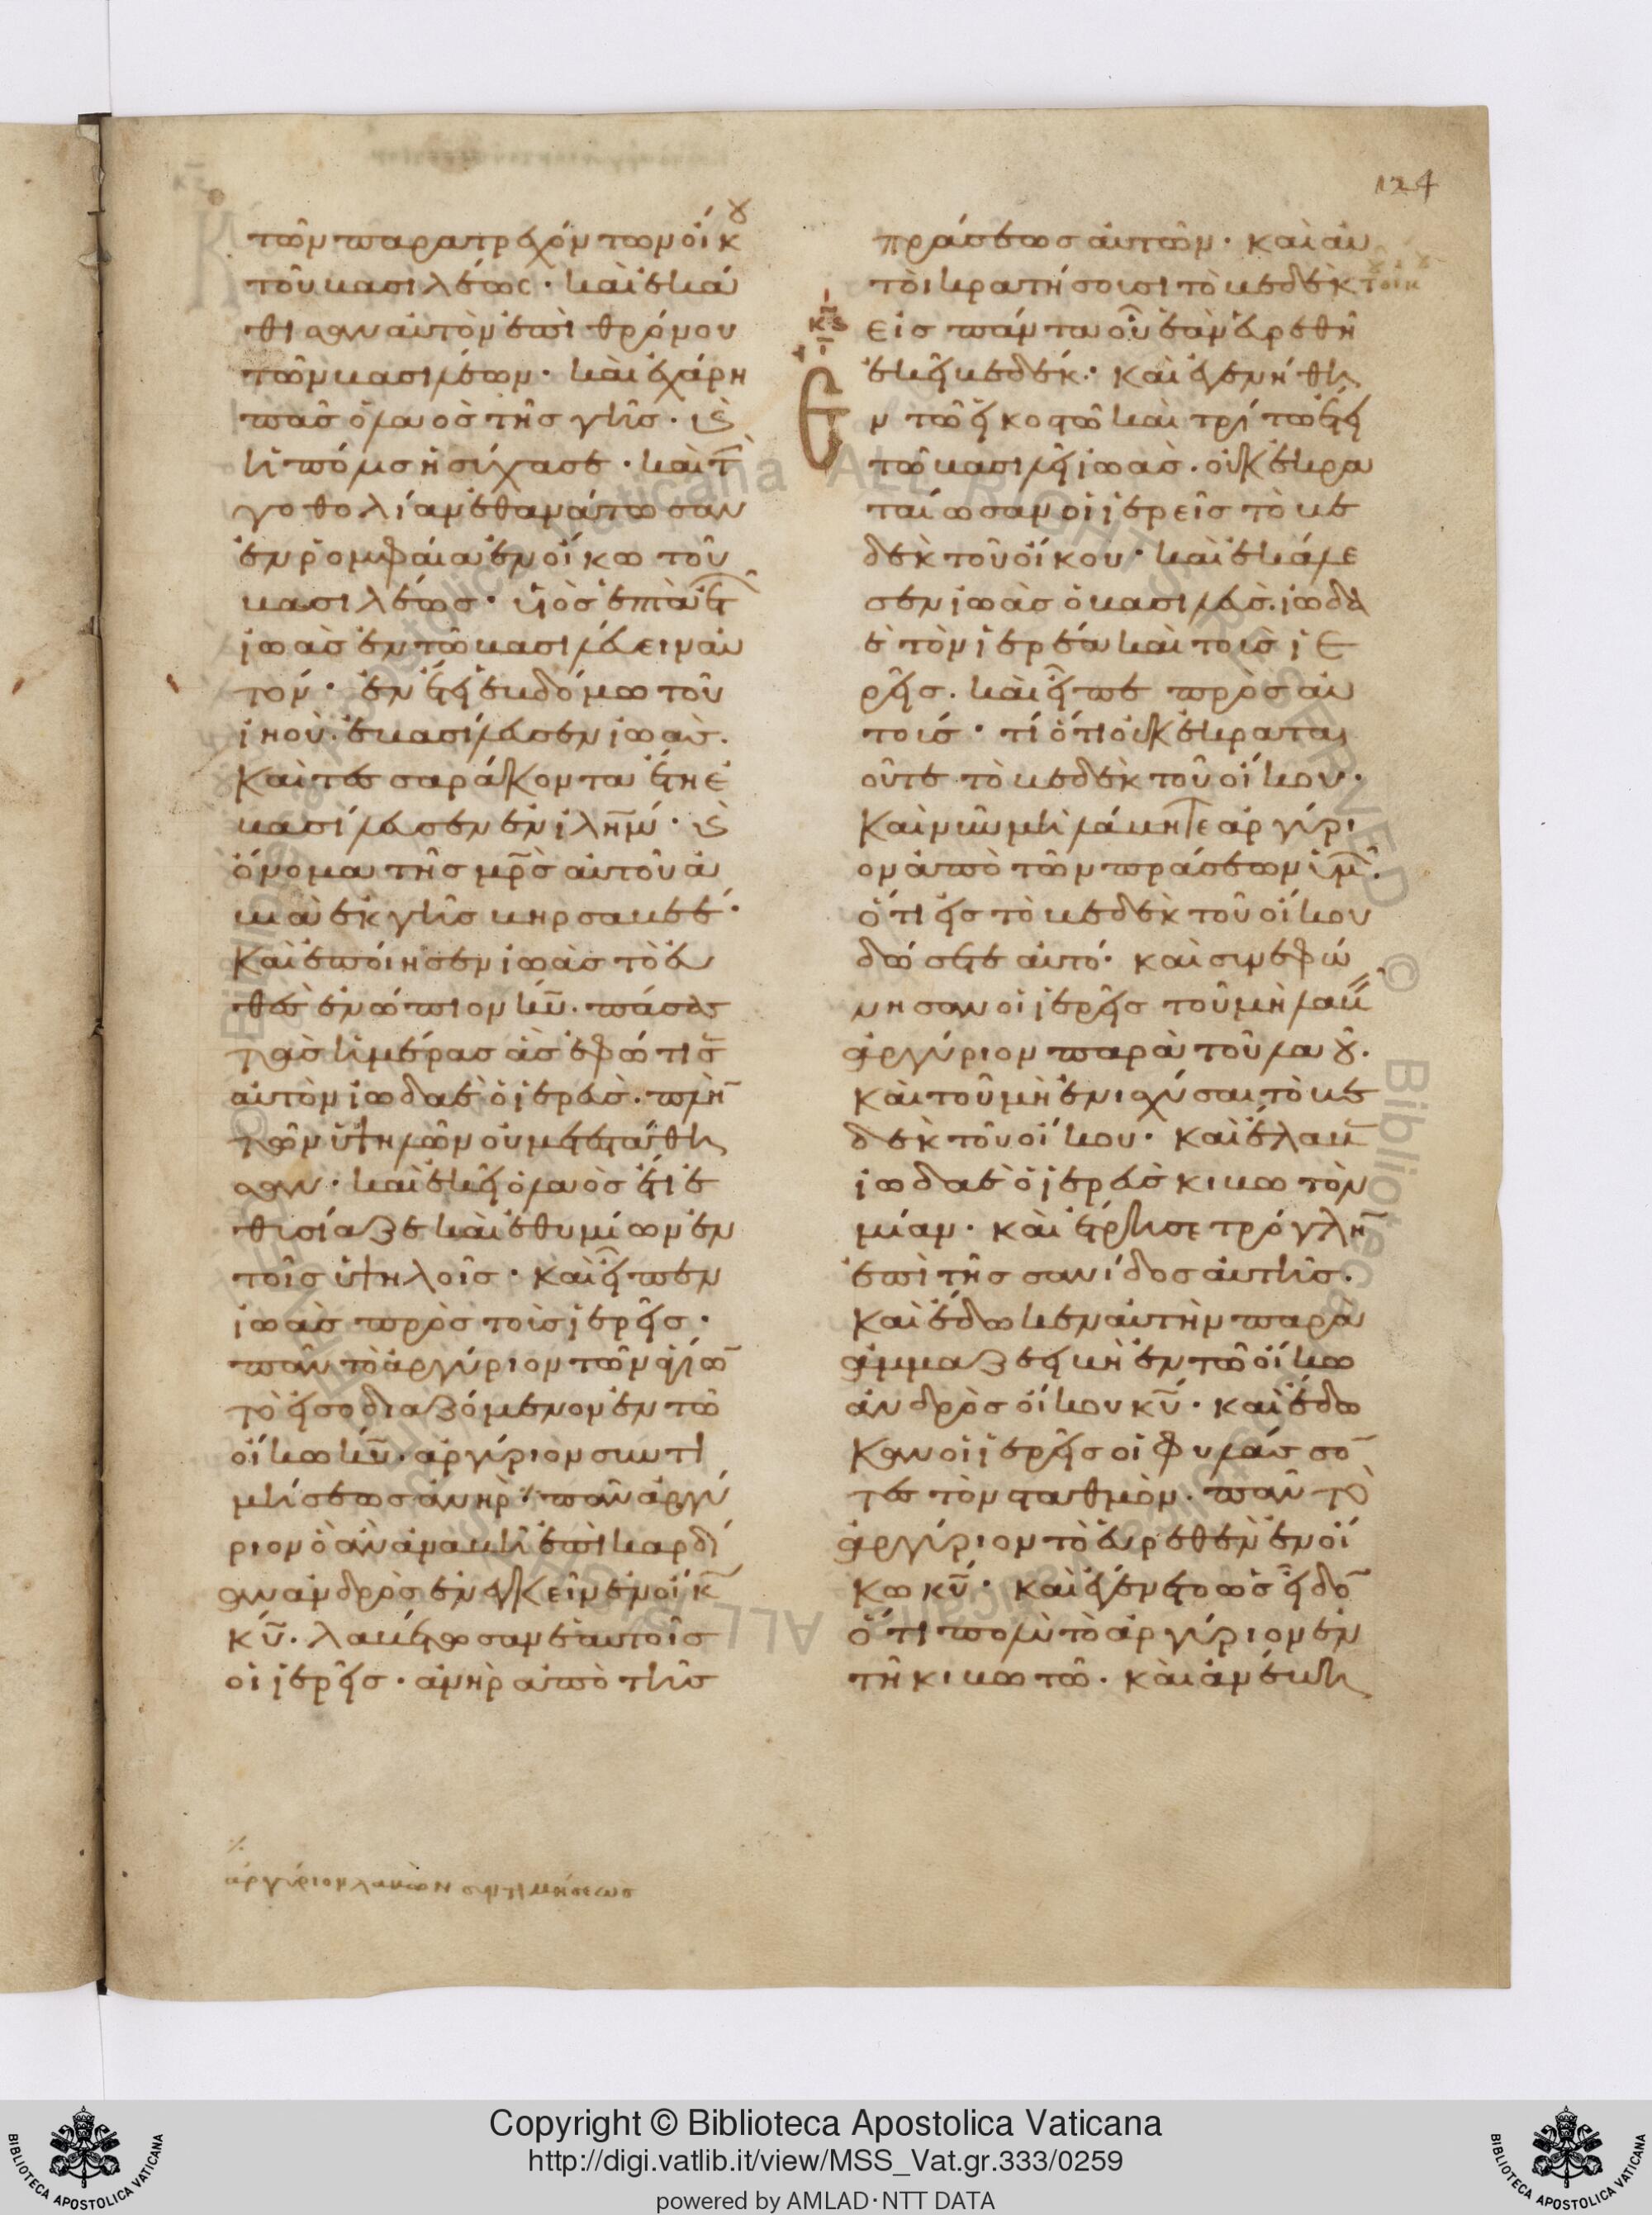 124
τῶν παρατρεχόντων οἴκου
τοῦ βασιλέως· καὶ ἐκά
θισαν αὐτὸν ἐπὶ θρόνου
τῶν βασιλέων· καὶ ἐχάρη
πᾶσ ὁ λαὸσ τῆσ γῆσ· καὶ
ἡ πόλισ ἡσύχασε· καὶ τὴν
γοθολίαν ἐθανάτωσαν
ἐν ῥομφαία ἐν οἴκω τοῦ
βασιλέωσ· υἱὸσ ἑπτὰ ἐτῶν
ἰωὰσ ἐν τῶ βασιλεύειν αὐ
τόν· ἐν ἔτει ἑβδόμω τοῦ
ἰηοὺ ἐβασίλευσεν ἰωάσ.
Καὶ τεσσαράκοντα ἔτη ἐ
βασίλευσεν ἐν ἱλημ· καὶ
ὄνομα τῆσ μρσ αὐτοῦ ἀ
βιὰ ἐκ γῆσ βηρσαβεέ·
Καὶ ἐποίησεν ἰωὰσ τὸ εὐ
θὲσ ἐνώπιον κυ. πάσασ
τὰσ ἡμέρασ ἃσ ἐφώτισεν
αὐτὸν ἰωδαὲ ὁ ἱερεύσ. πλὴν
τῶν ὑψηλῶν οὐ μετεστάθη
σαν· καὶ ἐκεῖ ὁ λαὸσ ἔτι ἐ
θυσίαζε καὶ ἐθυμίων ἐν
τοῖσ ὑψηλοῖσ· Καὶ εἶπεν
ἰωὰσ πρὸσ τοὺσ ἱερεῖσ·
πᾶν τὸ ἀργύριον τῶν ἁγίων
τὸ εἰσοδιαζόμενον ἐν τῶ
οἴκω κυ. ἀργύριον συντι
μήσεωσ ἀνὴρ·⁒ πᾶν ἀργύ
ριον ὃ ἂν ἀναβῆ ἐπὶ καρδί
αν ἀνδρὸσ ἐνεγκεῖν ἐν οἴκω
κυ. λαβέτωσαν ἑαυτοῖσ
οἱ ἱερεῖσ· ἀνὴρ ἀπὸ τῆσ
⁒
ἀργύριον λαβὼν συντιμήσεως
πράσεωσ αὐτῶν· καὶ αὐ
τοὶ κρατήσουσι τὸ βεδὲκ τοῦ οἴκου
εἰσ πάντα οὗ ἐὰν εὑρεθῆ
ἐκεῖ βεδέκ· Καὶ ἐγενήθη
Εν τῶ εἰκοστῶ καὶ τρίτω ἔτει
τῶ βασιλεῖ ἰωάσ. οὐκ ἐκρα
ταίωσαν οἱ ἱερεῖσ τὸ βε
δὲκ τοῦ οἴκου· καὶ ἐκάλε
σεν ἰωὰσ ὁ βασιλεύσ. ἰωδα
ὲ τὸν ἱερέα καὶ τοὺσ ἱε
ρεῖσ. καὶ εἶπε πρὸσ αὐ
τούσ· τί ὅτι οὐκ ἐκραται
οῦτε τὸ βεδὲκ τοῦ οἴκου·
Καὶ νῦν μὴ λάβητε ἀργύρι
ον ἀπὸ τῶν πράσεων ὑμῶν·
ὅτι εἰσ τὸ βεδὲκ τοῦ οἴκου
δώσετε αὐτό· καὶ συνεφώ
νησαν οἱ ἱερεῖσ τοῦ μὴ λαβεῖν
ἀργύριον παρὰ τοῦ λαοῦ.
Καὶ τοῦ μὴ ἐνισχύσαι τὸ βε
δὲκ τοῦ οἴκου· Καὶ ἔλαβεν
ἰωδαὲ ὁ ἱερεὺσ κιβωτὸν
μίαν· καὶ ἔτρησε τρόγλην
ἐπὶ τῆσ σανίδοσ αὐτῆσ.
Καὶ ἔδωκεν αὐτὴν παρὰ
ἀμμαζειβὴ ἐν τῶ οἴκω
ἀνδρὸσ οἴκου κυ· καὶ ἔδω
Καν οἱ ἱερεῖσ οἱ φυλάσσον
τεσ τὸν σταθμὸν. πᾶν τὸ
ἀργύριον τὸ εὑρεθὲν ἐν οἴ
κω κυ· Καὶ ἐγένετο ὡσ εἶδον
ὅτι πολὺ τὸ ἀργύριον ἐν
τῆ κιβωτῶ. καὶ ἀνέβη
Copyright © Biblioteca Apostolica Vaticana
http://digi.vatlib.it/view/MSS_Vat.gr.333/0259
powered by AMLAD·NTT DATA